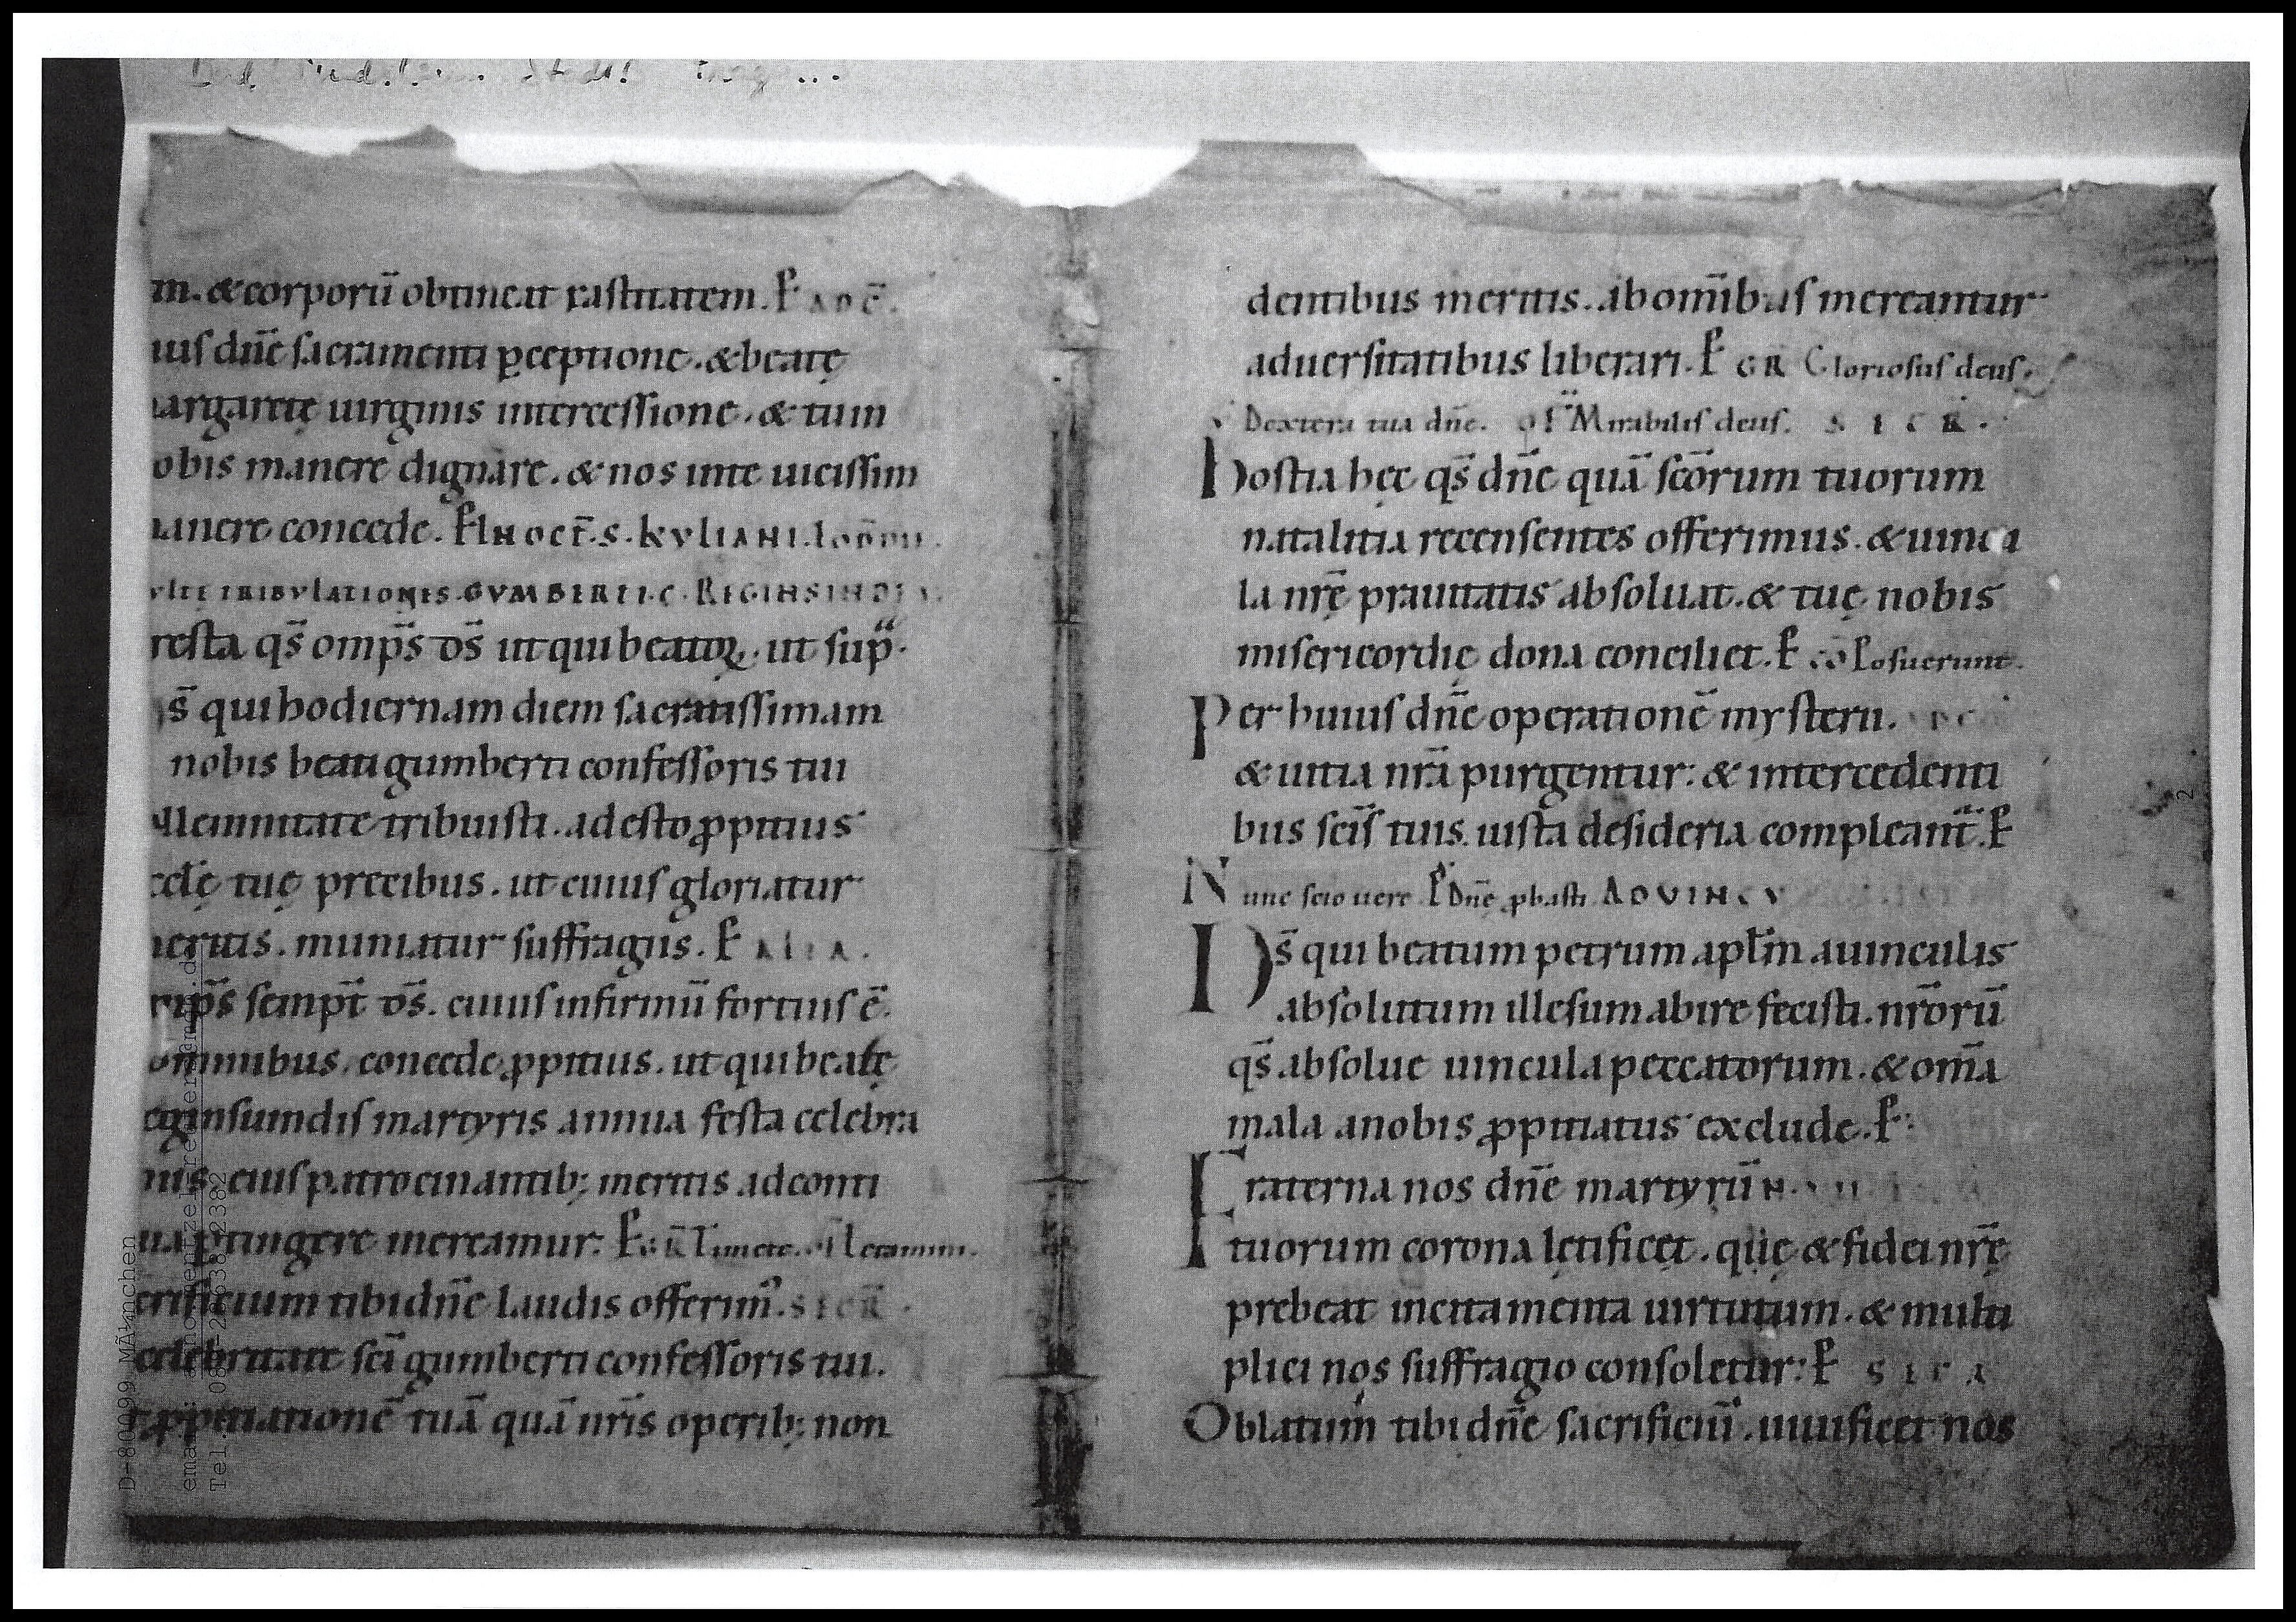 m. & corporū obtineat castitatem. P AD C̄.
uis dn̄e sacramenti ꝑceptione. & beatę
argaretę uirginis intercessione. & tum
obis manere dignare. & nos inte uicissim
anere concede. P IN OCT̄. S. KYLIANI.
TRIBVLATIONES. GVMBERTI. C. REGINSINDIS
resta qs̄ omp̄s ds̄ ut qui beatoꝝ. ut sup̄.
s̄ qui hodiernam diem sacratissimam
nobis beati gumberti confessoris tui
llemnitate tribuisti. adesto ꝓpitius
ccl̄ę tuę precibus. ut cuius gloriatur
eritis. muniatur suffragiis. P ALIA.
mp̄s semp̄t ds̄. cuius infirmū fortius ē.
ominibus. concede ꝓpitius. ut qui beatę
eginsundis martyris annua festa celebra
mus. eius patrocinantib; meritis ad conti
ua ꝑtingere mereamur. P GR̄ Timete. Letamini.
crificium tibi dn̄e laudis offerim᾽. SECR̄.
celebritate sc̄i gumberti confessoris tui.
ꝓpitiationē tuā quā nr̄is operib; non
dentibus meritis. ab om̄ibus mereamur
aduersitatibus liberari. P GR Gloriosus deus.
Dextera tua dn̄e. Mirabilis deus. SECR.
Hostia hęc qs̄ dn̄e quā sc̄orum tuorum
natalitia recensentes offerimus. & uinc a
la nr̄ę prauitatis absoluat. & tuę nobis
misericordię dona conciliet. P CŌ Posuerunt.
Per huius dn̄e operationē mysterii.
& uitia nr̄a purgentur: & intercedenti
bus sc̄is tuis. iusta desideria compleant̄. P
Nunc scio uere. P Dn̄e ꝓbasti AD VINCV
Ds̄ qui beatum petrum apl̄m auinculis
absolutum illesum abire fecisti. nr̄orū
qs̄ absolue uincula peccatorum. & om̄a
mala anobis ꝓpitiatus exclude. P
Fraterna nos dn̄e martyrū
tuorum corona lętificet. quę & fidei nr̄ę
prebeat incitamenta uirtutum. & multi
plici nos suffragio consoletur: P SECR
Oblatum tibi dn̄e sacrificiū. uiuificet nos
D-80099 München
2